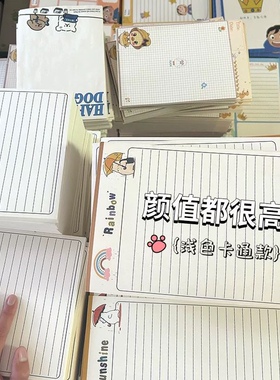 HAP
DOG
颜值都很高
{浅色卡通款}
Rainbow
unshine